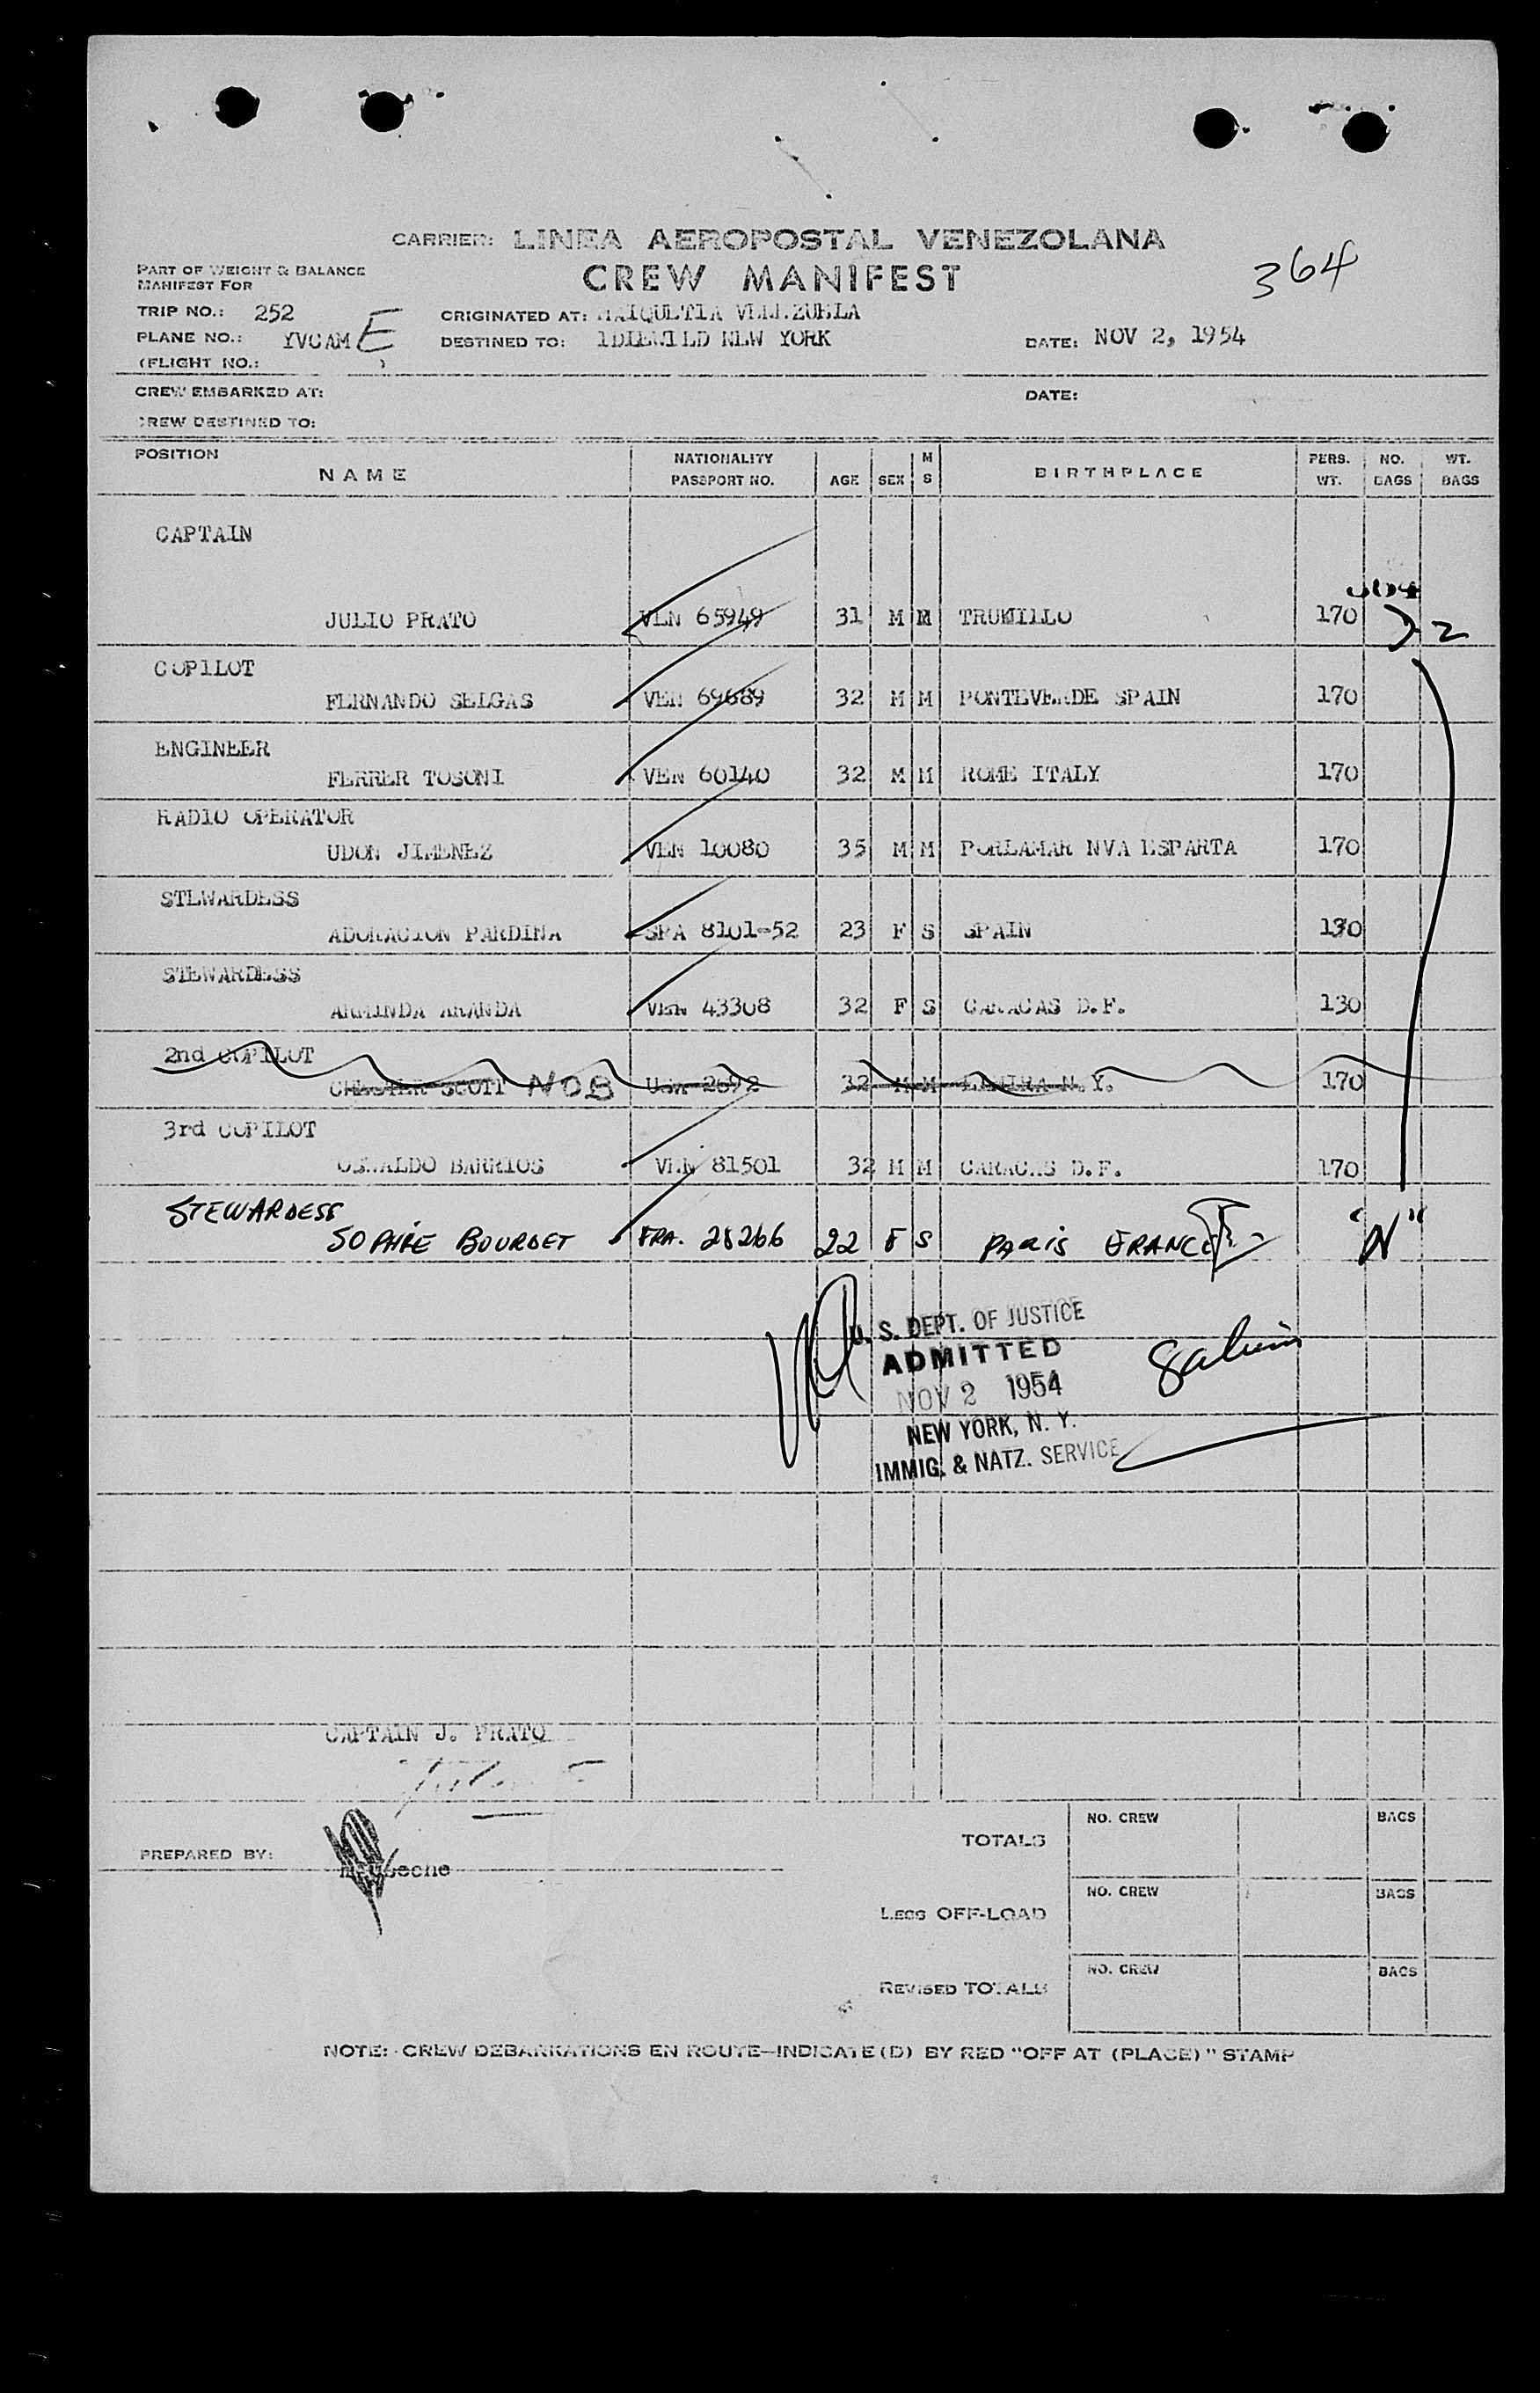 CARRIER: LINEA AEROPOSTAL VENEZOLANA
PART OF WEIGHT & BALANCE
MANIFEST FOR
CREW MANIFEST
364
TRIP NO.: 252
ORIGINATED AT: MAIQUETIA VENEZUELA
PLANE NO.: YVCAM E
DESTINED TO: IDLEWILD NEW YORK
DATE: NOV 2, 1954
(FLIGHT NO.: )
CREW EMBARKED AT:
DATE:
CREW DESTINED TO:
POSITION NAME NATIONALITY PASSPORT NO. AGE SEX M S BIRTHPLACE PERS. WT. NO. BAGS WT. BAGS
CAPTAIN
JULIO PRATO VEN 65949 31 M M TRUMILLO 170 D-2
COPILOT
FERNANDO SELGAS VEN 69689 32 M M PONTEVERDE SPAIN 170
ENGINEER
FERRER TOSONI VEN 60140 32 M M ROME ITALY 170
RADIO OPERATOR
UDON JIMENEZ VEN 10080 35 M M PORLAMAR NVA ESPARTA 170
STEWARDESS
ADORACION PARDINA SPA 8101-52 23 F S SPAIN 130
STEWARDESS
ARMINDA ARANDA VEN 43308 32 F S CARACAS D.F. 130
2nd COPILOT
CHESTER SCOTT NOB USA 2692 32 M M ELMIRA N.Y. 170
3rd COPILOT
OSWALDO BARRIOS VEN 81501 32 M M CARACAS D.F. 170
STEWARDESS
SOPHIE BOURDET FRA. 28266 22 F S PARIS FRANCE "N"
U. S. DEPT. OF JUSTICE
ADMITTED
NOV 2 1954
NEW YORK, N. Y.
IMMIG. & NATZ. SERVICE
CAPTAIN J. PRATO
PREPARED BY:
TOTALS NO. CREW BAGS
LESS OFF-LOAD NO. CREW BAGS
REVISED TOTALS NO. CREW BAGS
NOTE: CREW DEBARKATIONS EN ROUTE—INDICATE (D) BY RED "OFF AT (PLACE)" STAMP